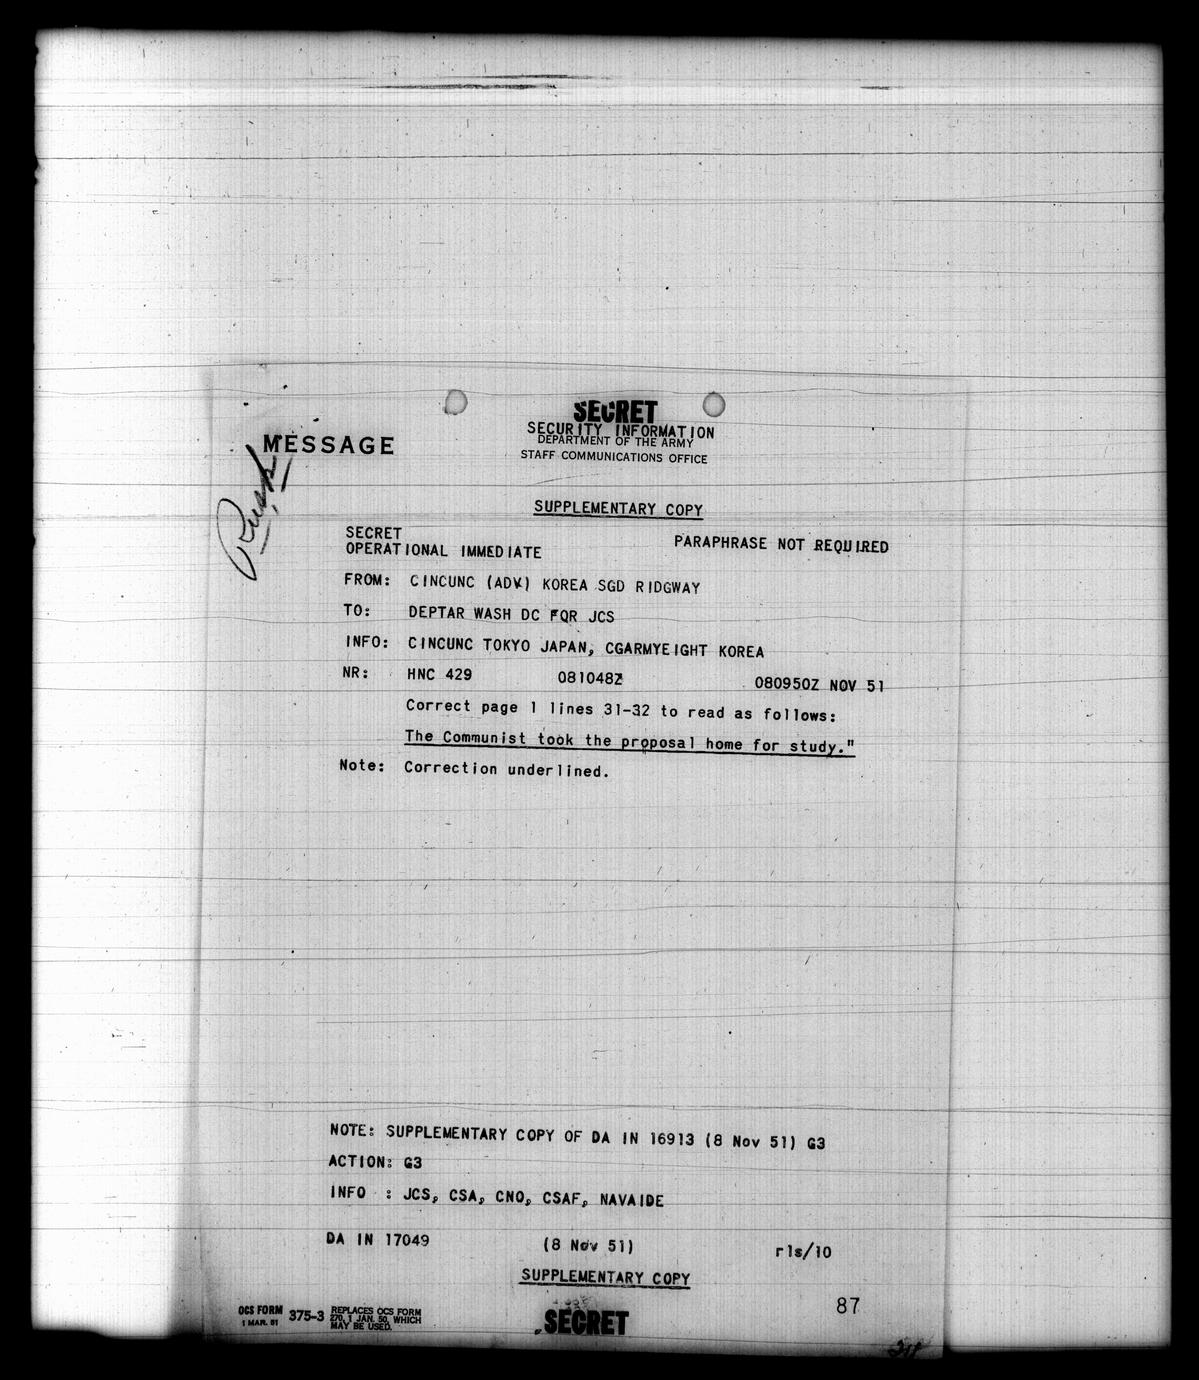 SECRET
SECURITY INFORMATION
DEPARTMENT OF THE ARMY
STAFF COMMUNICATIONS OFFICE
MESSAGE
Rusk
SUPPLEMENTARY COPY
SECRET
OPERATIONAL IMMEDIATE PARAPHRASE NOT REQUIRED
FROM: CINCUNC (ADV) KOREA SGD RIDGWAY
TO: DEPTAR WASH DC FOR JCS
INFO: CINCUNC TOKYO JAPAN, CGARMYEIGHT KOREA
NR: HNC 429 081048Z 080950Z NOV 51
Correct page 1 lines 31-32 to read as follows:
The Communist took the proposal home for study."
Note: Correction underlined.
NOTE: SUPPLEMENTARY COPY OF DA IN 16913 (8 Nov 51) G3
ACTION: G3
INFO : JCS, CSA, CNO, CSAF, NAVAIDE
DA IN 17049 (8 Nov 51) rls/10
SUPPLEMENTARY COPY
87
OCS FORM 375-3 REPLACES OCS FORM
1 MAR. 51 270, 1 JAN. 50, WHICH
MAY BE USED.
SECRET